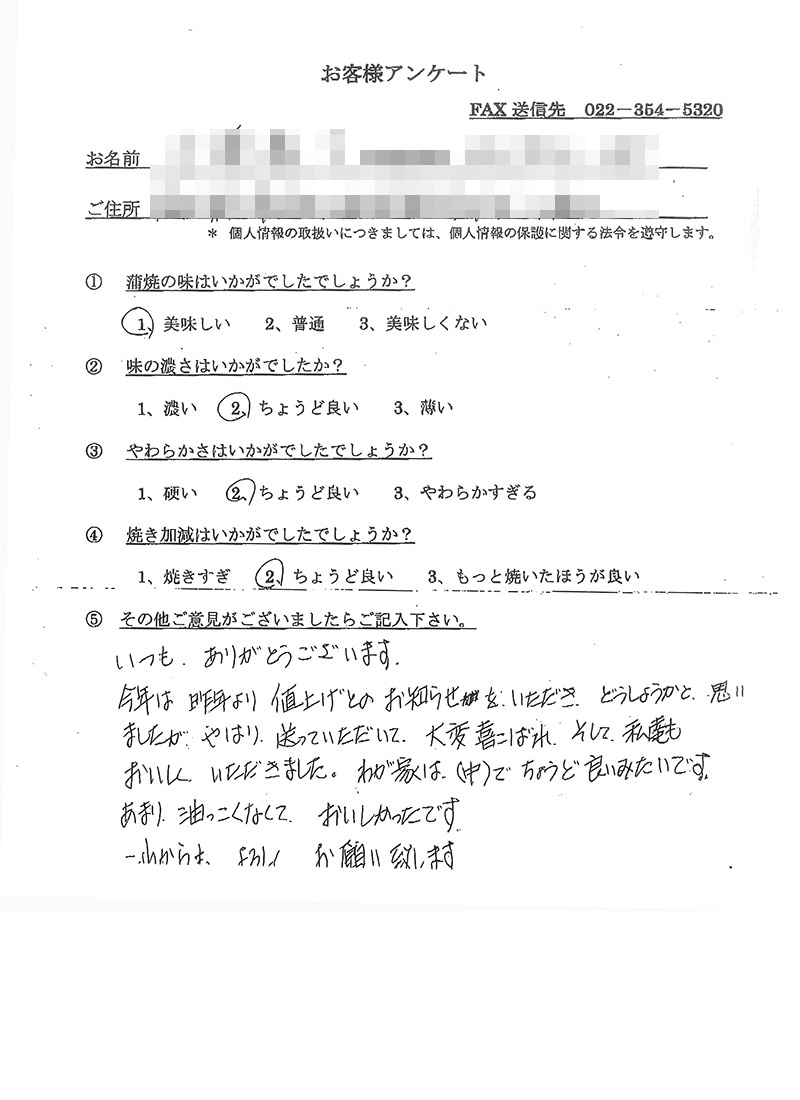 お客様アンケート
FAX 送信先 022-354-5320
お名前
ご住所
* 個人情報の取扱いにつきましては、個人情報の保護に関する法令を遵守します。
① 蒲焼の味はいかがでしたでしょうか？
1、美味しい 2、普通 3、美味しくない
② 味の濃さはいかがでしたか？
1、濃い 2、ちょうど良い 3、薄い
③ やわらかさはいかがでしたでしょうか？
1、硬い 2、ちょうど良い 3、やわらかすぎる
④ 焼き加減はいかがでしたでしょうか？
1、焼きすぎ 2、ちょうど良い 3、もっと焼いたほうが良い
⑤ その他ご意見がございましたらご記入下さい。
いつも、ありがとうございます。
今年は 昨年より 値上げとの お知らせ を、いただき、どうしようかと、思い
ましたが、やはり、送っていただいて、大変喜こばれ、そして、私達も
おいしく、いただきました。わが家は、(中)で ちょうど 良いみたいです。
あまり、油っこくなくて、おいしかったです。
これからも、よろしく お願い致します